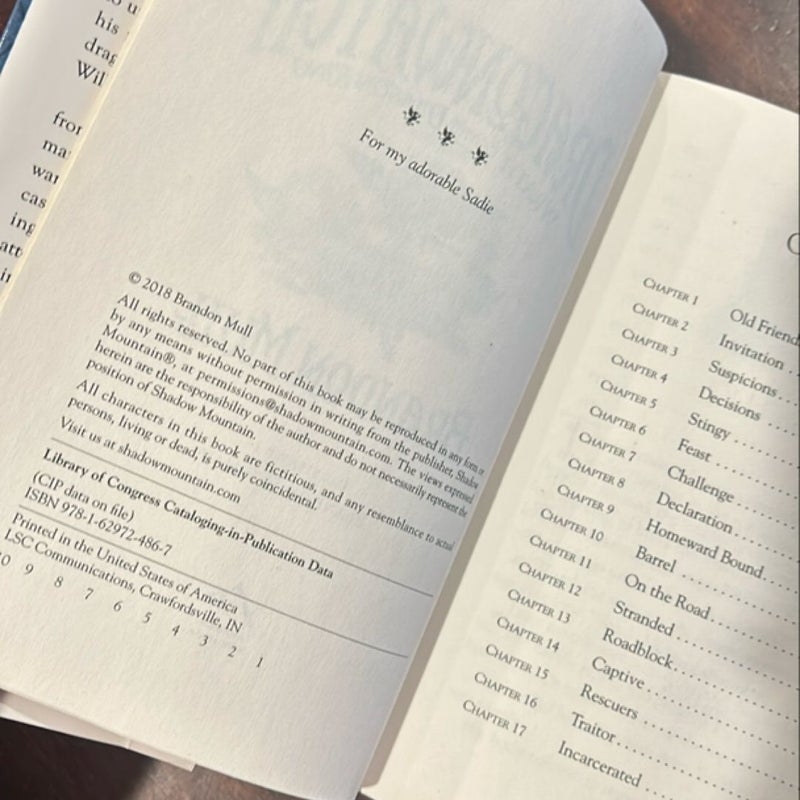 his
drag
Wil
from
ma
war
cas
ing
att
in
For my adorable Sadie
© 2018 Brandon Mull
All rights reserved. No part of this book may be reproduced in any form or
by any means without permission in writing from the publisher, Shadow
Mountain®, at permissions@shadowmountain.com. The views expressed
herein are the responsibility of the author and do not necessarily represent the
position of Shadow Mountain.
All characters in this book are fictitious, and any resemblance to actual
persons, living or dead, is purely coincidental.
Visit us at shadowmountain.com
Library of Congress Cataloging-in-Publication Data
(CIP data on file)
ISBN 978-1-62972-486-7
Printed in the United States of America
LSC Communications, Crawfordsville, IN
10 9 8 7 6 5 4 3 2 1
Chapter 1 Old Friend
Chapter 2 Invitation
Chapter 3 Suspicions
Chapter 4 Decisions
Chapter 5 Stingy
Chapter 6 Feast
Chapter 7 Challenge
Chapter 8 Declaration
Chapter 9 Homeward Bound
Chapter 10 Barrel
Chapter 11 On the Road
Chapter 12 Stranded
Chapter 13 Roadblock
Chapter 14 Captive
Chapter 15 Rescuers
Chapter 16 Traitor
Chapter 17 Incarcerated